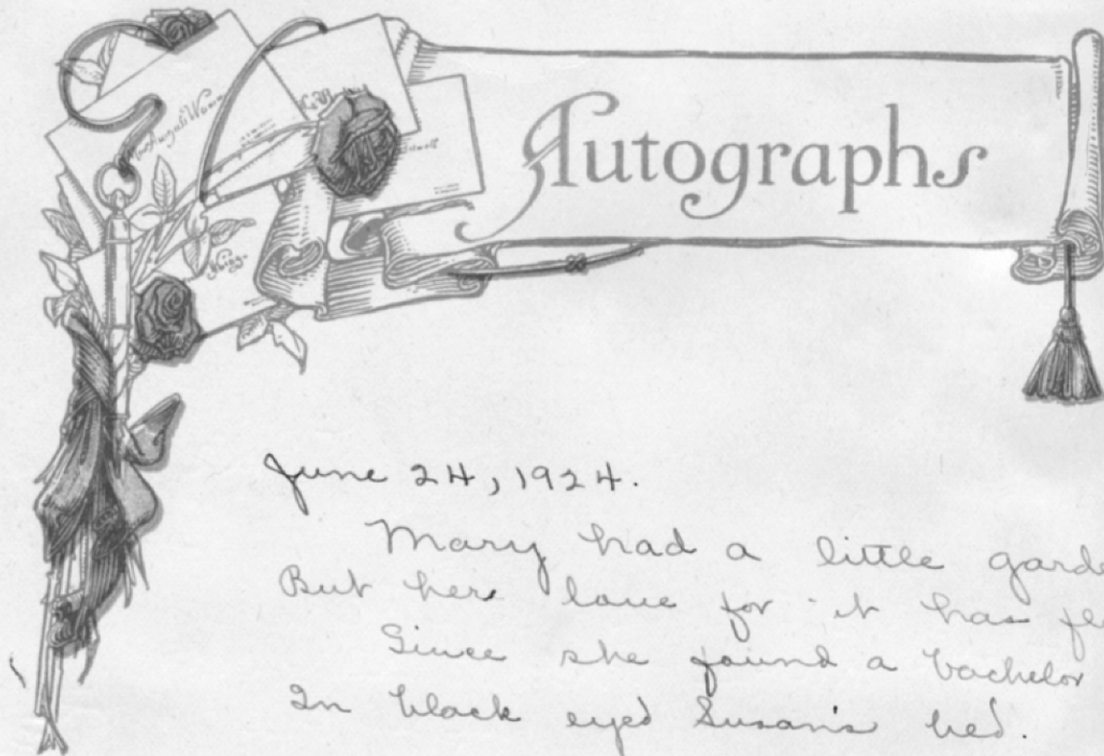 Autographs
June 24, 1924.
Mary had a little garde
But her love for it has fle
Since she found a bachelor
In black eyed Susan's bed.